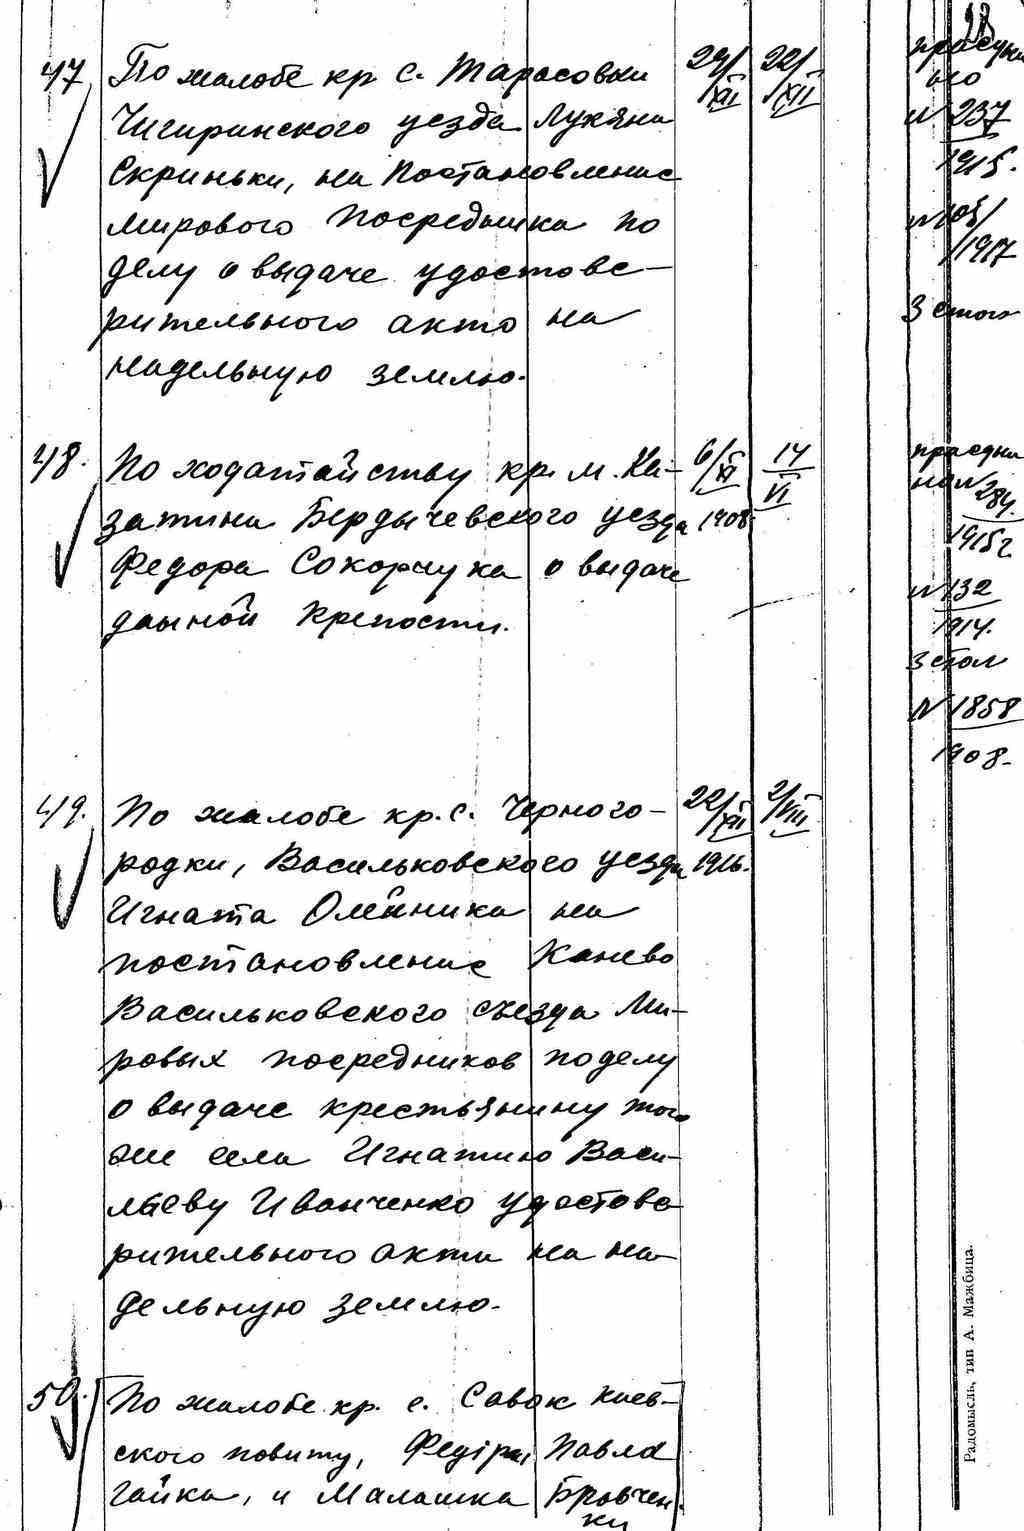 28
47 По жалобе кр с. Тарасовки 24/XII 22/XII
Чигиринского уезда Лукяна
Скриньки, на Постановление
Мирового Посредника по
делу о выдаче удостове-
рительного акта на
надельную землю.
№ 237
1915.
/1917
3 стол
48. По ходатайству кр. м. Ка- 6/XI 14/VI
затина Бердычевского уезда 1908
Федора Сокорчука о выдаче
данной Крепости.
284.
1915г
№ 132
1914.
3 стол
№ 1858
1908.
49. По жалобе кр. с. Черного- 22/XII 2/VIII
родки, Васильковского уезда 1916.
Игната Олейника на
постановление Канево
Васильковского съезда Ми-
ровых посредников по делу
о выдаче крестьянину того
же села Игнатию Васи-
льеву Иванченко удостове
рительного акта на на-
дельную землю.
50. По жалобе кр. с. Савок Киев-
ского повиту, Федіра, Павла
Гайка, и Малашка Бровчен-
ки
Радомысль, тип А. Мажбица.